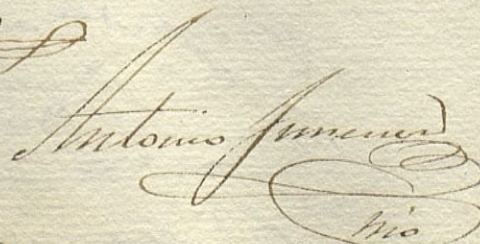 Antonio Jimenez